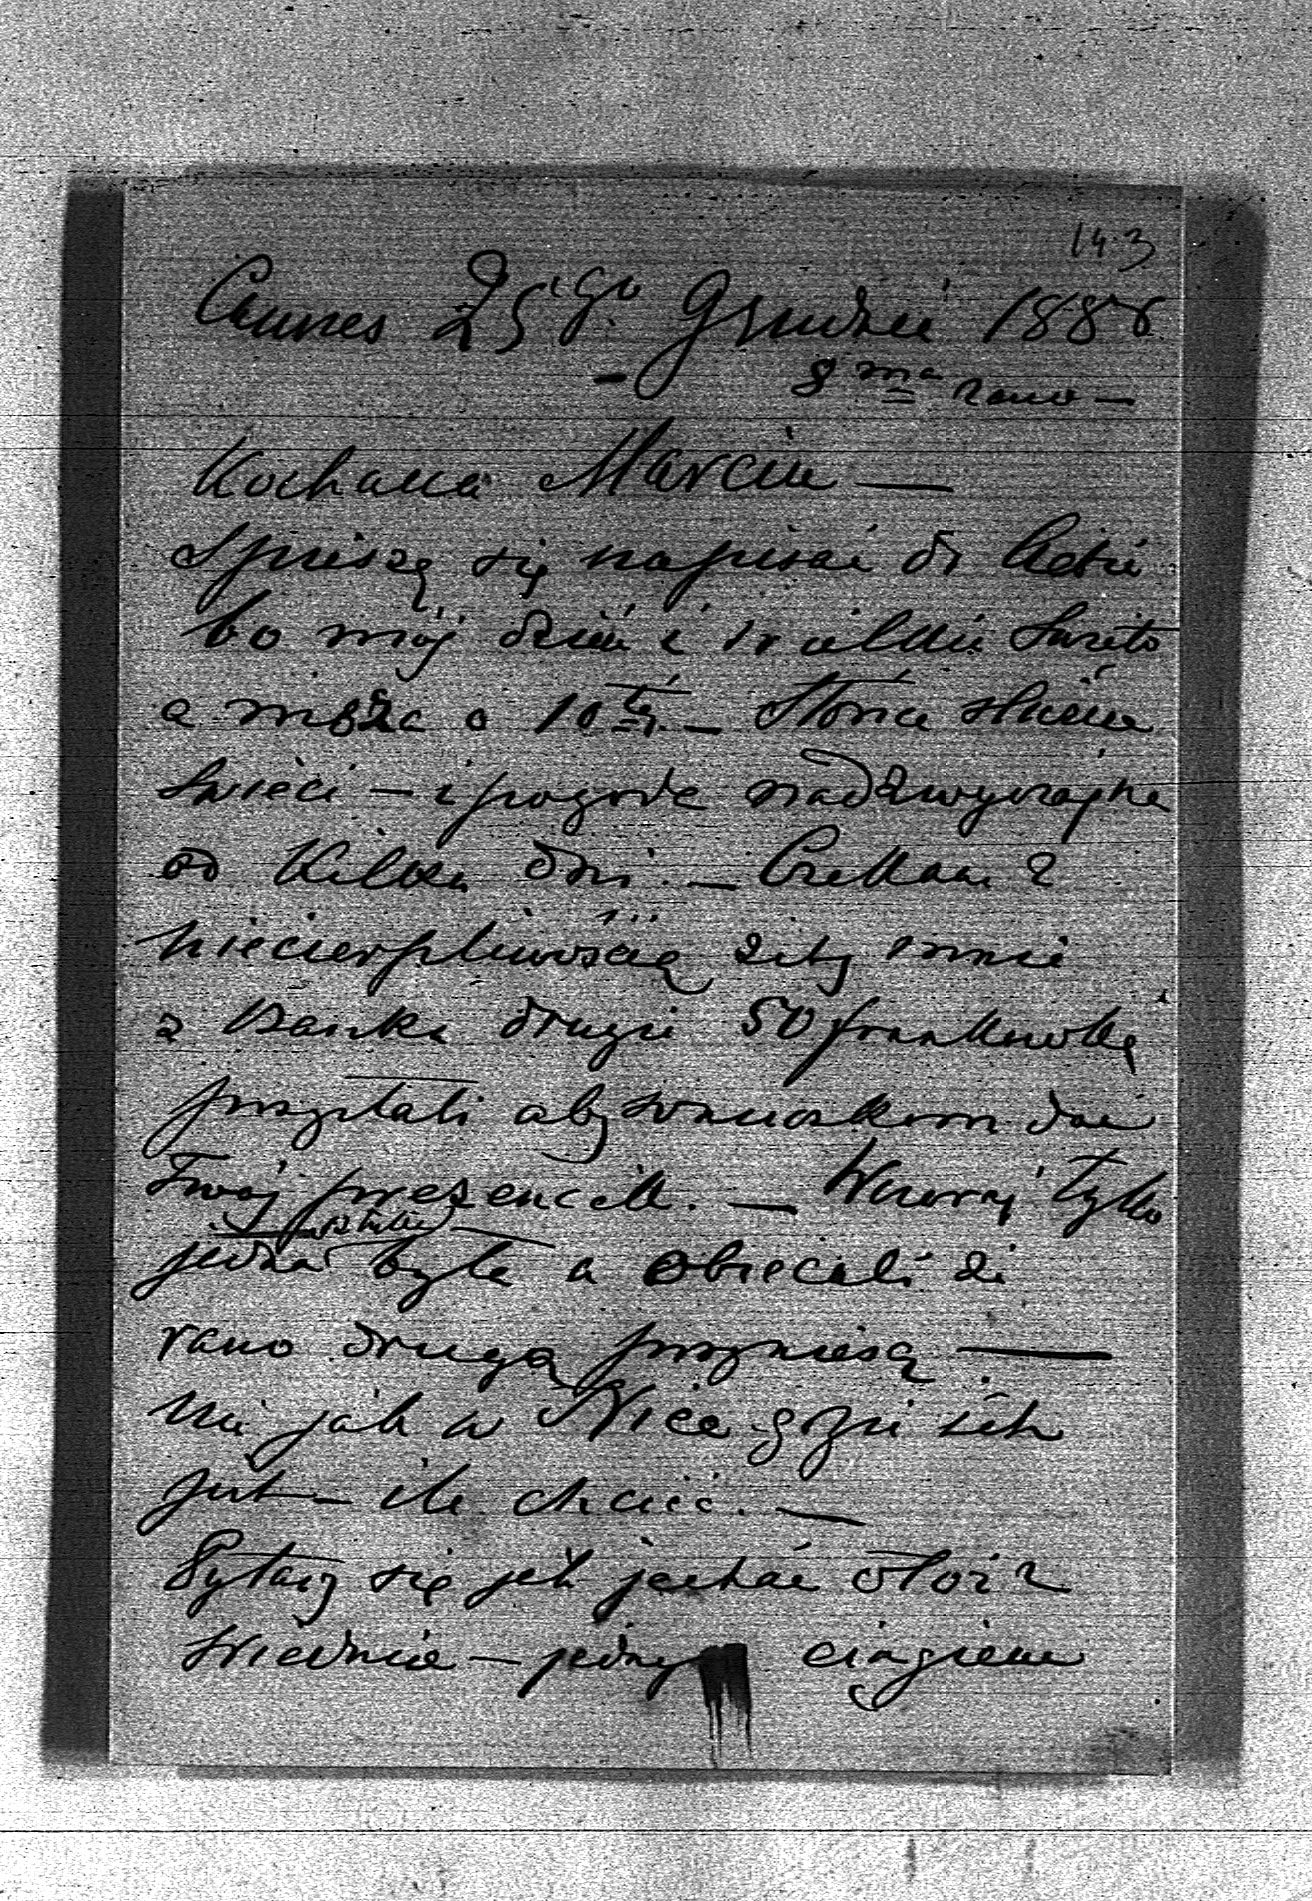 143
Cannes 25go Grudnia 1886
8ma rano —
Kochana Marciu —
Spieszę się napisać do Ciebie
bo mój dzień i wielkie święto
a msza o 10tej — Słońce
świeci — i pogoda nadzwyczajna
od kilku dni. — Czekam z
niecierpliwością żeby mnie
z Banku drugie 50 frankówkę
przysłali aby wnuczkom dać
Twój prezencik. — Wczoraj tylko
jedna była a obiecali że
rano drugą przyniosą —
Nie jak w Nice gdzie ich
jest — ile chcieć. —
Pytasz się jak jechać otóż z
Wiednia — jednym ciągiem